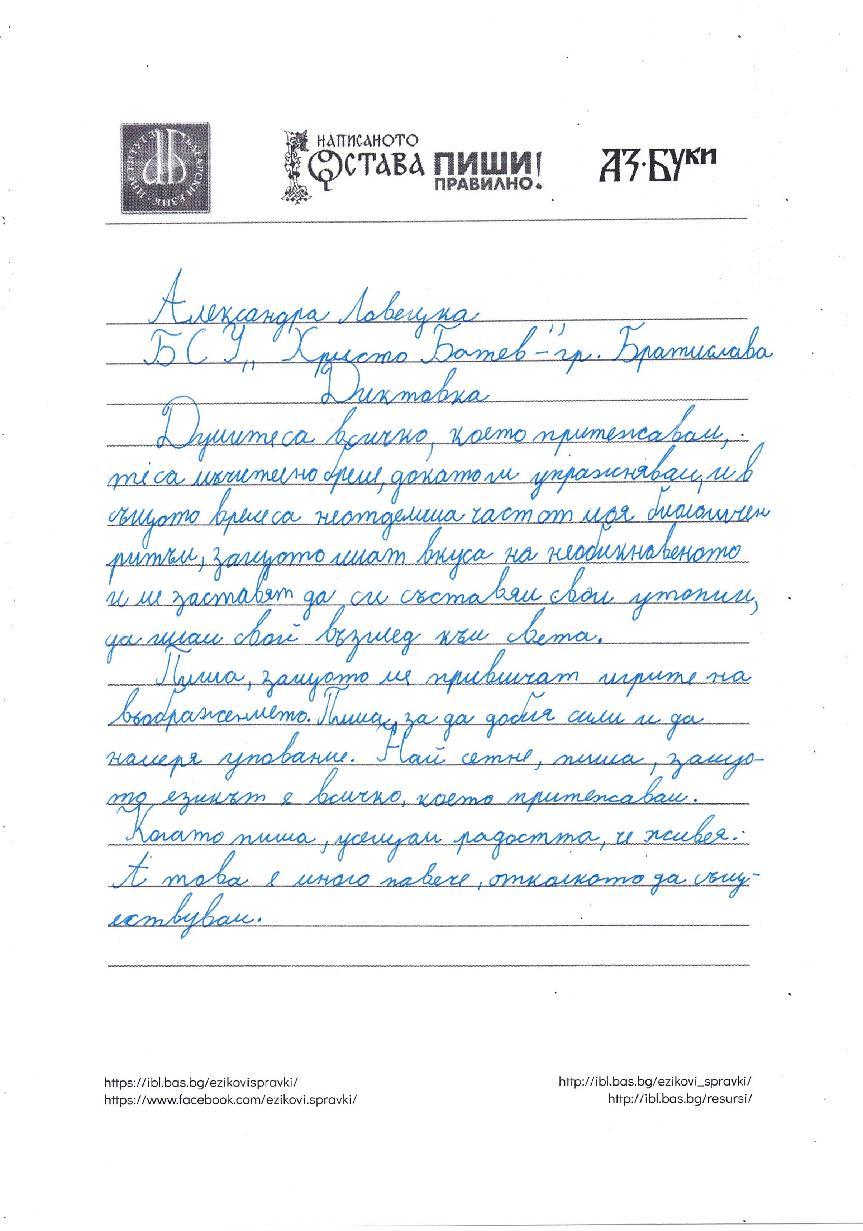 ИНСТИТУТ ЗА БЪЛГАРСКИ ЕЗИК
НАПИСАНОТО
ОСТАВА ПИШИ!
ПРАВИЛНО.
АЗ·БУКИ
Александра
БСУ „Христо Ботев" – гр. Братислава
Диктовка
Думите са всичко, което притежавам,
те са мъчително бреме, докато ги упражнявам, и в
същото време са неотделима част от моя биологичен
ритъм, защото имат вкуса на необикновеното
и ме заставят да си съставям свои утопии,
да имам свой възглед към света.
Пиша, защото ме привличат игрите на
въображението. Пиша, за да добия сили и да
намеря упование. Най сетне, пиша, защо-
то езикът е всичко, което притежавам.
Когато пиша, усещам радостта, че живея.
А това е много повече, отколкото да същ-
ествувам.
https://ibl.bas.bg/ezikovispravki/
https://www.facebook.com/ezikovi.spravki/
http://ibl.bas.bg/ezikovi_spravki/
http://ibl.bas.bg/resursi/